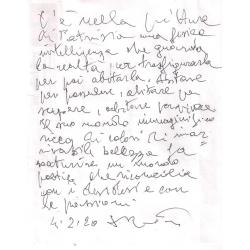 C'è nella pittura
di Patrizia una fisica
intelligenza che guarda
la realtà, per trasfigurarla
per poi abitarla. Abitare
per possedere, abitare per
sapere, abitare
il suo mondo immaginifico
ricco di colori di
bellezza
un mondo
poetico che riconcilia
con i desideri e con
le passioni.
4.2.20